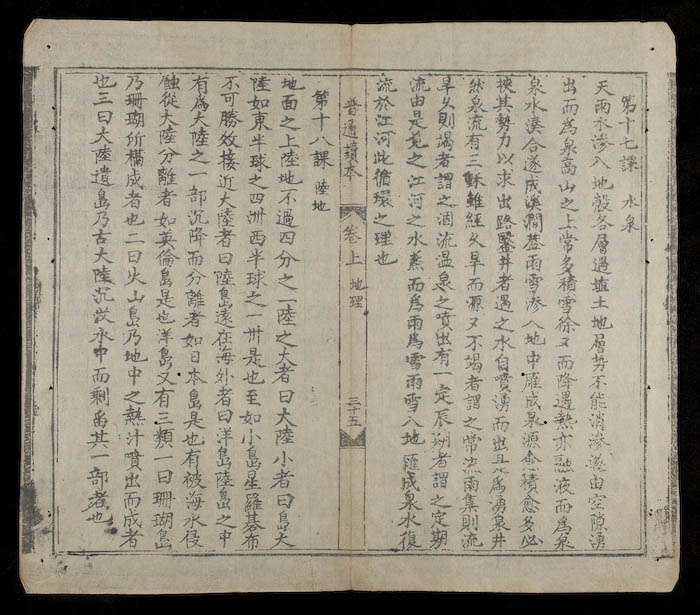 第十七課 水泉
天雨水滲入地殼各層遇埴土地層勢不能消滲遂由空隙湧
出而爲泉高山之上常多積雪徐又而降遇熱亦融液而爲泉
泉水湊合遂成溪澗葢雨雪滲入地中匯成泉源愈積愈多必
挾其勢力以求出路鑿井者遇之水自噴湧而出是爲湧泉井
然泉流有三種雖經久旱而源又不竭者謂之常流雨集則流
旱久則竭者謂之涸流温泉之噴出有一定辰期者謂之定期
流由是覌之江河之水蒸而爲雨爲雪雨雪入地匯成泉水復
流於江河此循環之理也
普通讀本 卷上 地理 三十五
第十八課 陸地
地面之上陸地不過四分之一陸之大者曰大陸小者曰島大
陸如東半球之四洲西半球之一卅是也至如小島星羅碁布
不可勝效接近大陸者曰陸島遠在海外者曰洋島陸島之中
有爲大陸之一部沉降而分離者如日本島是也有被海水侵
蝕從大陸分離者如英倫島是也洋島又有三類一曰珊瑚島
乃珊瑚所構成者也二曰火山島乃地中之熱汁噴出而成者
也三曰大陸遺島乃古大陸沉沒水中而剩畱其一部者也